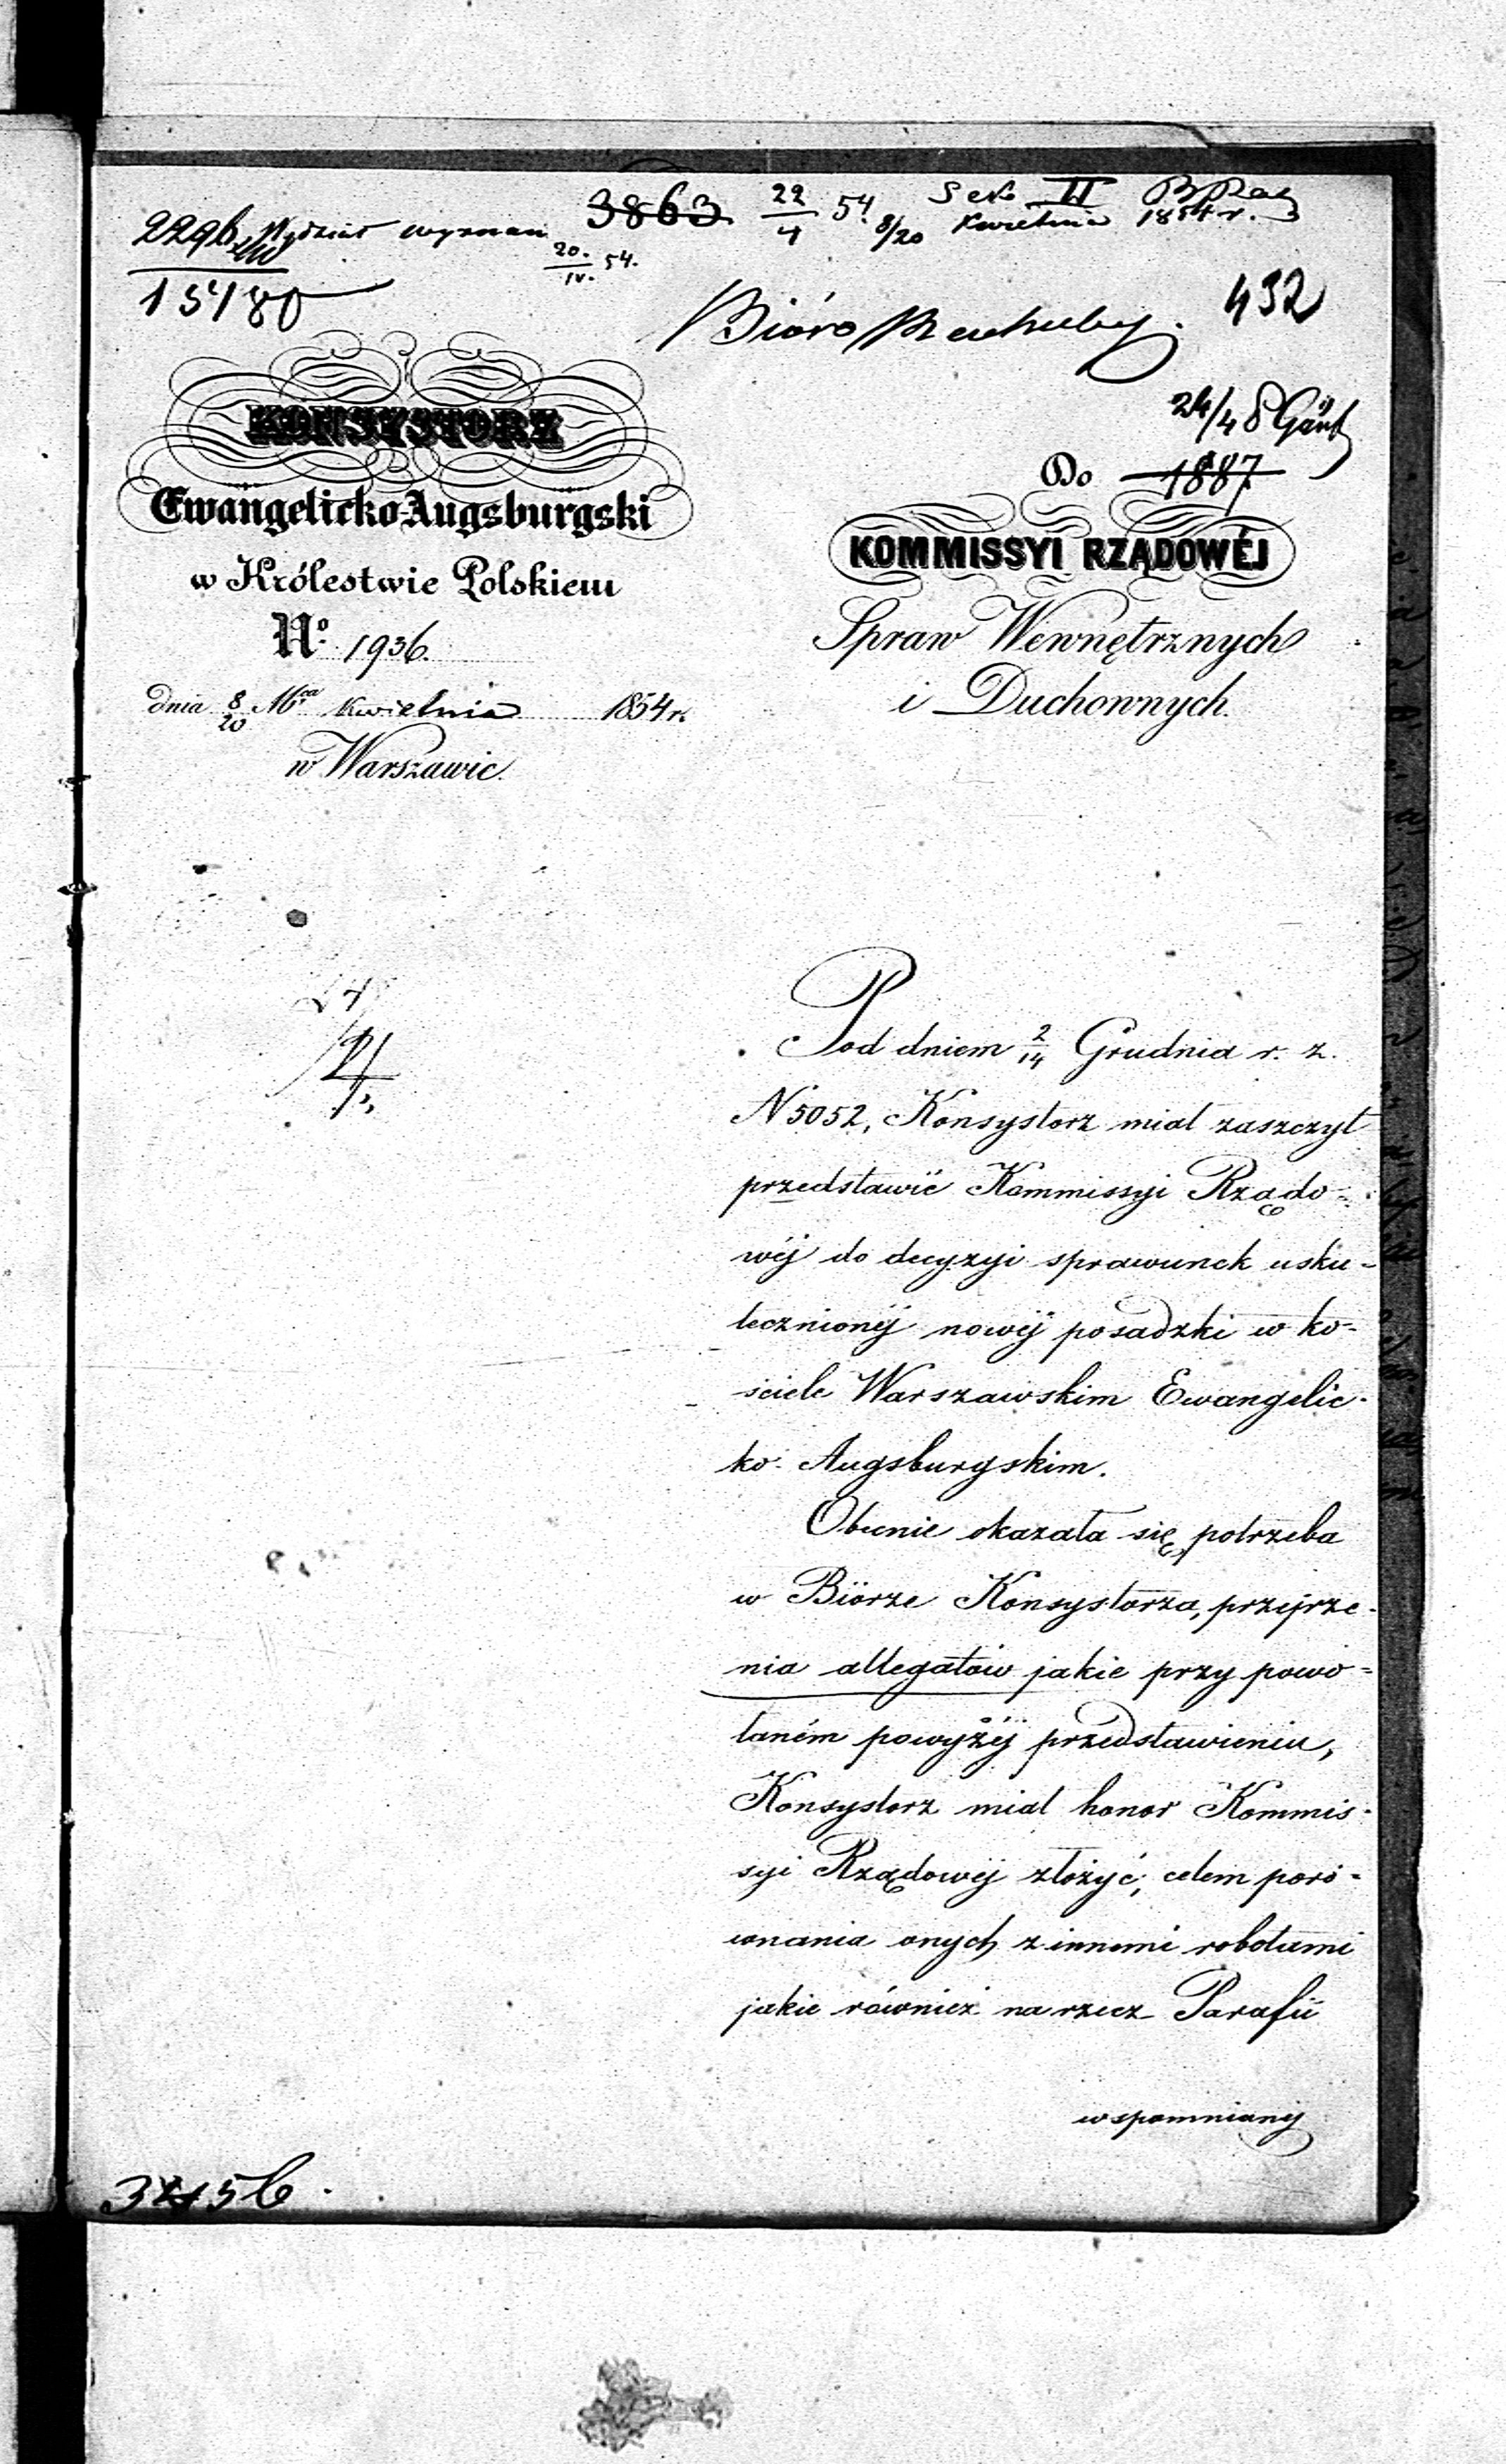 3863 22/4 54. Sek. II
8/20 Kwietnia 1854 r.
Wydział wyznań
20./IV. 54.
15480
Bióro Rachuby.
432
24/4
KONSYSTORZ
Ewangelicko-Augsburgski
w Królestwie Polskiem
No. 1936.
dnia 8/20 Mca Kwietnia 1854 r.
w Warszawie.
Do 1887
KOMMISSYI RZĄDOWÉJ
Spraw Wewnętrznych
i Duchownych.
Pod dniem 2/14 Grudnia r. z.
N 5052, Konsystorz miał zaszczyt
przedstawić Kommissyi Rządo-
wéj do decyzyi sprawunek usku-
tecznionéj nowéj posadzki w ko-
ściele Warszawskim Ewangelic-
ko-Augsburgskim.
Obecnie okazała się potrzeba
w Biórze Konsystorza, przejrze-
nia allegatów jakie przy powo-
łaném powyżéj przedstawieniu,
Konsystorz miał honor Kommis-
syi Rządowéj złożyć, celem poró-
wnania onych z innemi robotami
jakie również na rzecz Parafii
wspomnianéj